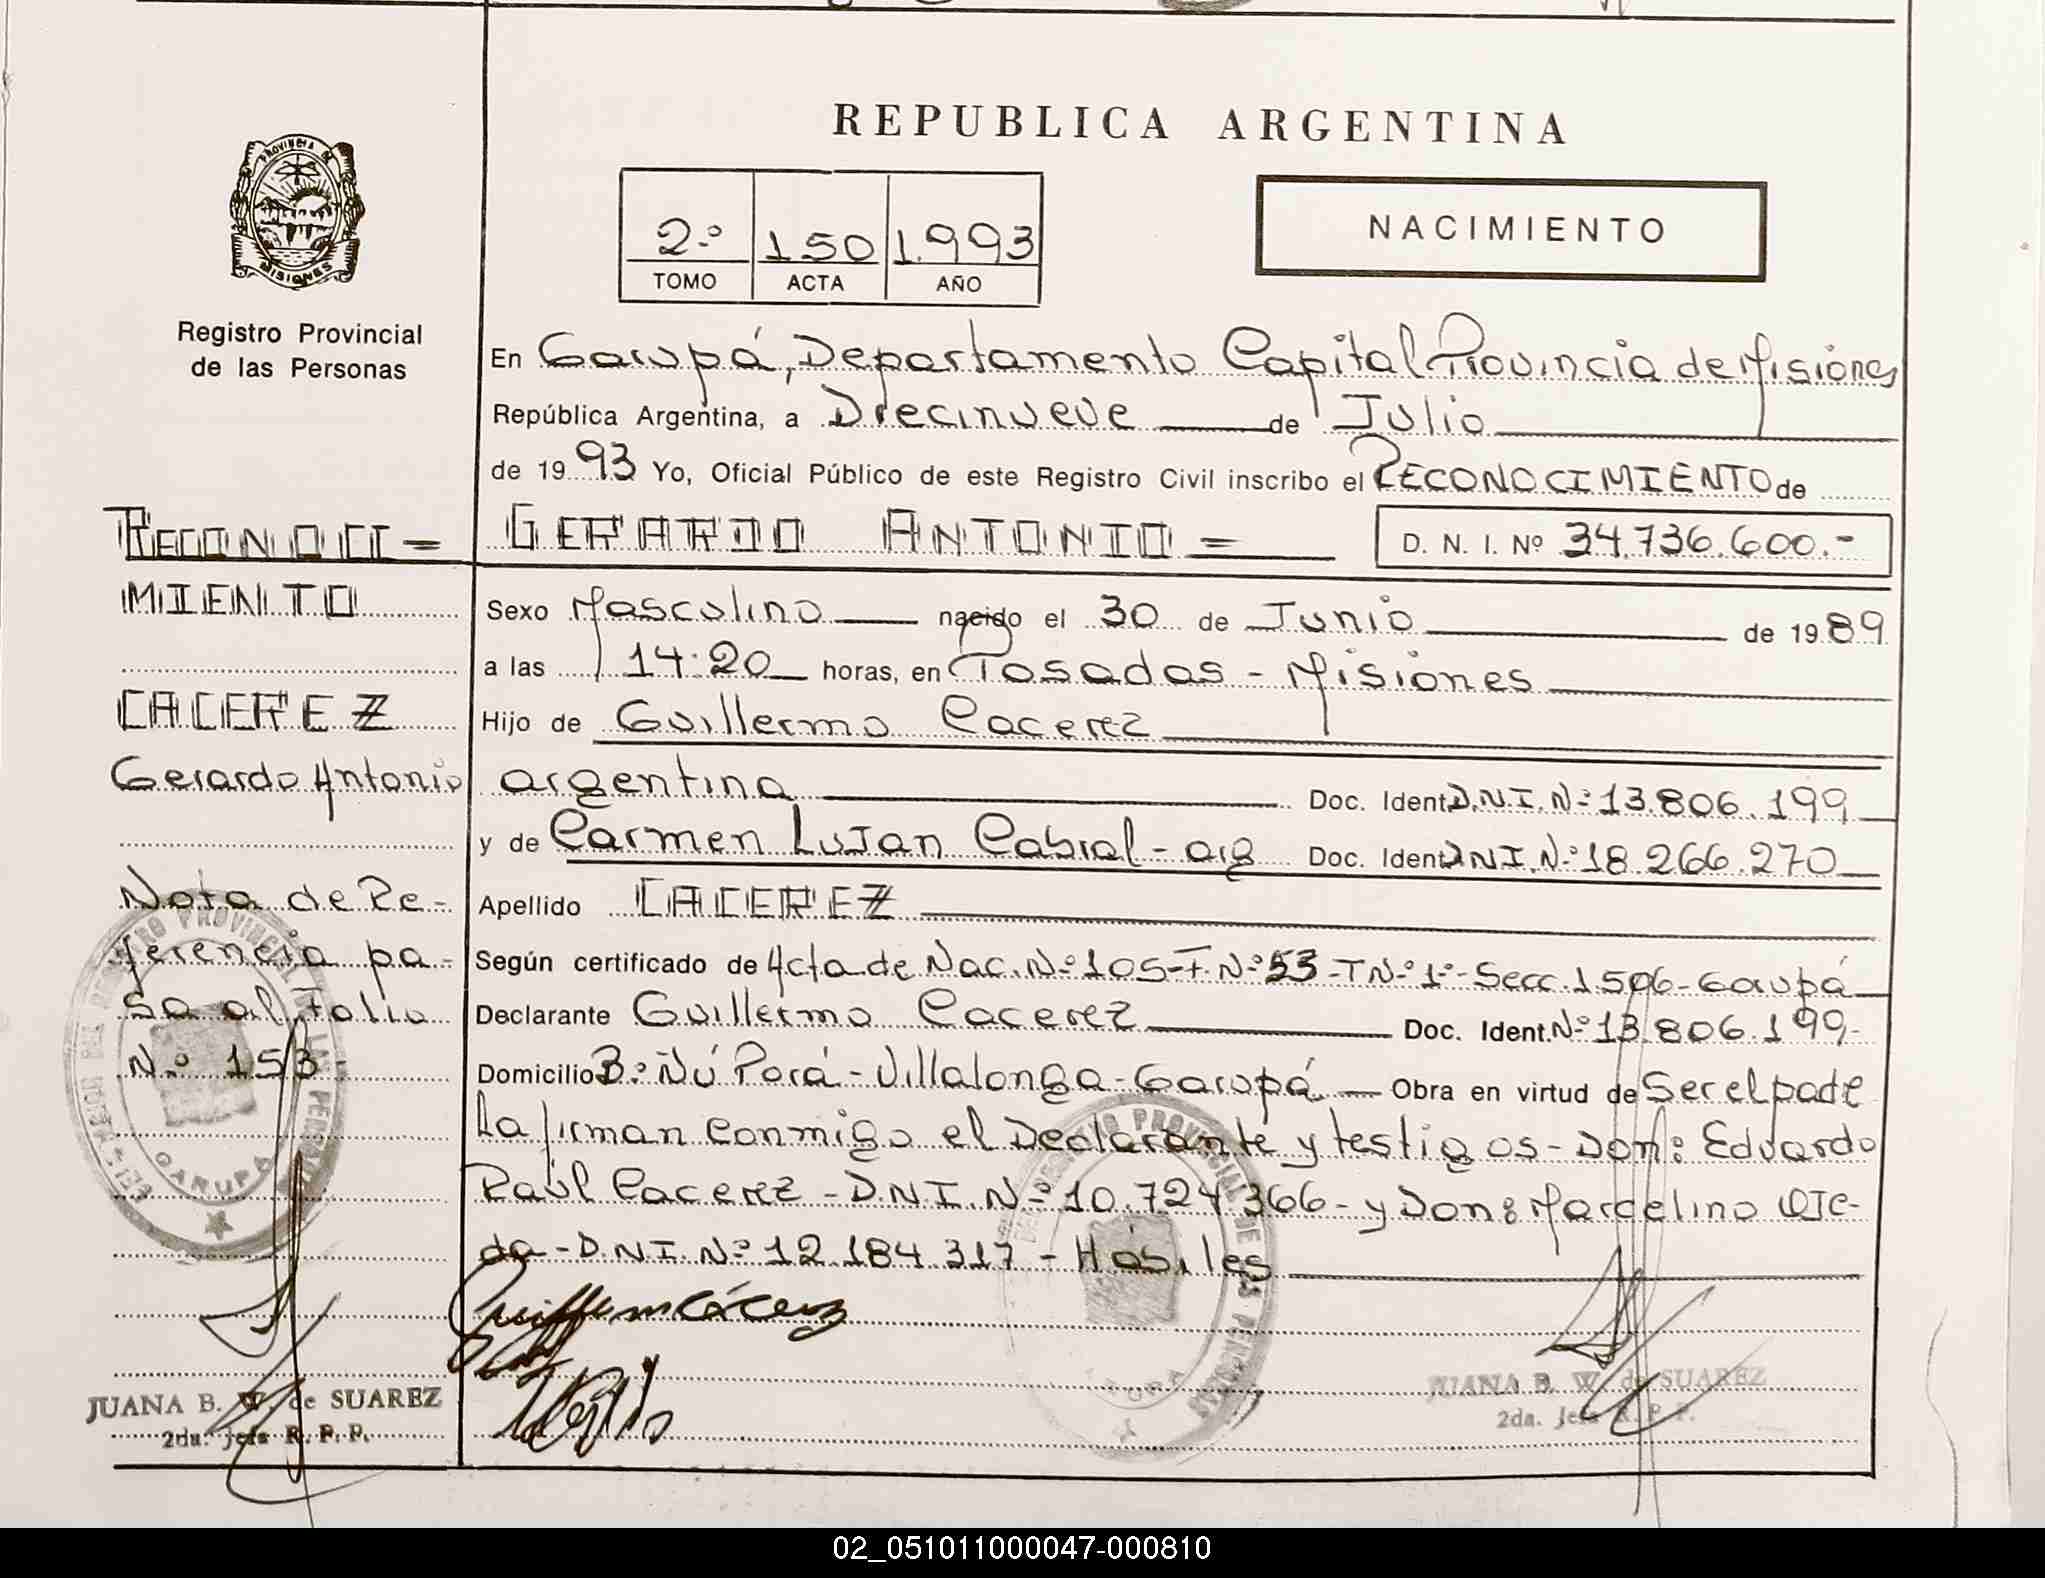 REPUBLICA ARGENTINA
PROVINCIA DE
MISIONES
Registro Provincial
de las Personas
2.º 150 1.993
TOMO ACTA AÑO
NACIMIENTO
En Garupá, Departamento Capital Provincia de Misiones
República Argentina, a Diecinueve de Julio
de 1993 Yo, Oficial Público de este Registro Civil inscribo el RECONOCIMIENTO de
GERARDO ANTONIO = D. N. I. Nº 34.736.600.-
RECONOCI=
MIENTO
CACEREZ
Gerardo Antonio
Nota de Re-
ferencia pa-
sa al Folio
N.º 153
Sexo Masculino nacido el 30 de Junio de 1989
a las 14:20 horas, en Posadas - Misiones
Hijo de Guillermo Cacerez
argentina Doc. Ident. D.N.I. N.º 13.806.199
y de Carmen Lujan Cabral - arg Doc. Ident. D.N.I. N.º 18.266.270
Apellido CACEREZ
Según certificado de Acta de Nac. N.º 105 - F. N.º 53 - T N.º 1.º - Secc. 1506 - Garupá
Declarante Guillermo Cacerez Doc. Ident. N.º 13.806.199.-
Domicilio B.º Ñú Porá - Villalonga - Garupá Obra en virtud de Ser el padre
La firman conmigo el Declarante y testigos - Don: Eduardo
Raúl Cacerez - D.N.I. N.º 10.724.366 - y Don: Marcelino Oje-
da - D.N.I. N.º 12.184.317 - Hábiles
GARUPA
JUANA B. W. de SUAREZ
2da. Jefa R. P. P.
JUANA B. W. de SUAREZ
2da. Jefa R. P. P.
02_051011000047-000810